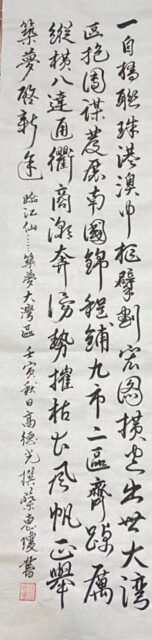 一自橋聯珠港澳中樞擘劃宏圖橫空出世大灣
區抱團謀發展南國錦程鋪九市二區齊踔厲
縱橫八達通衢商潮奔湧勢摧枯長風帆正舉
築夢啓新途 臨江仙……築夢大灣區 壬寅秋日高德光撰 惠瓊書